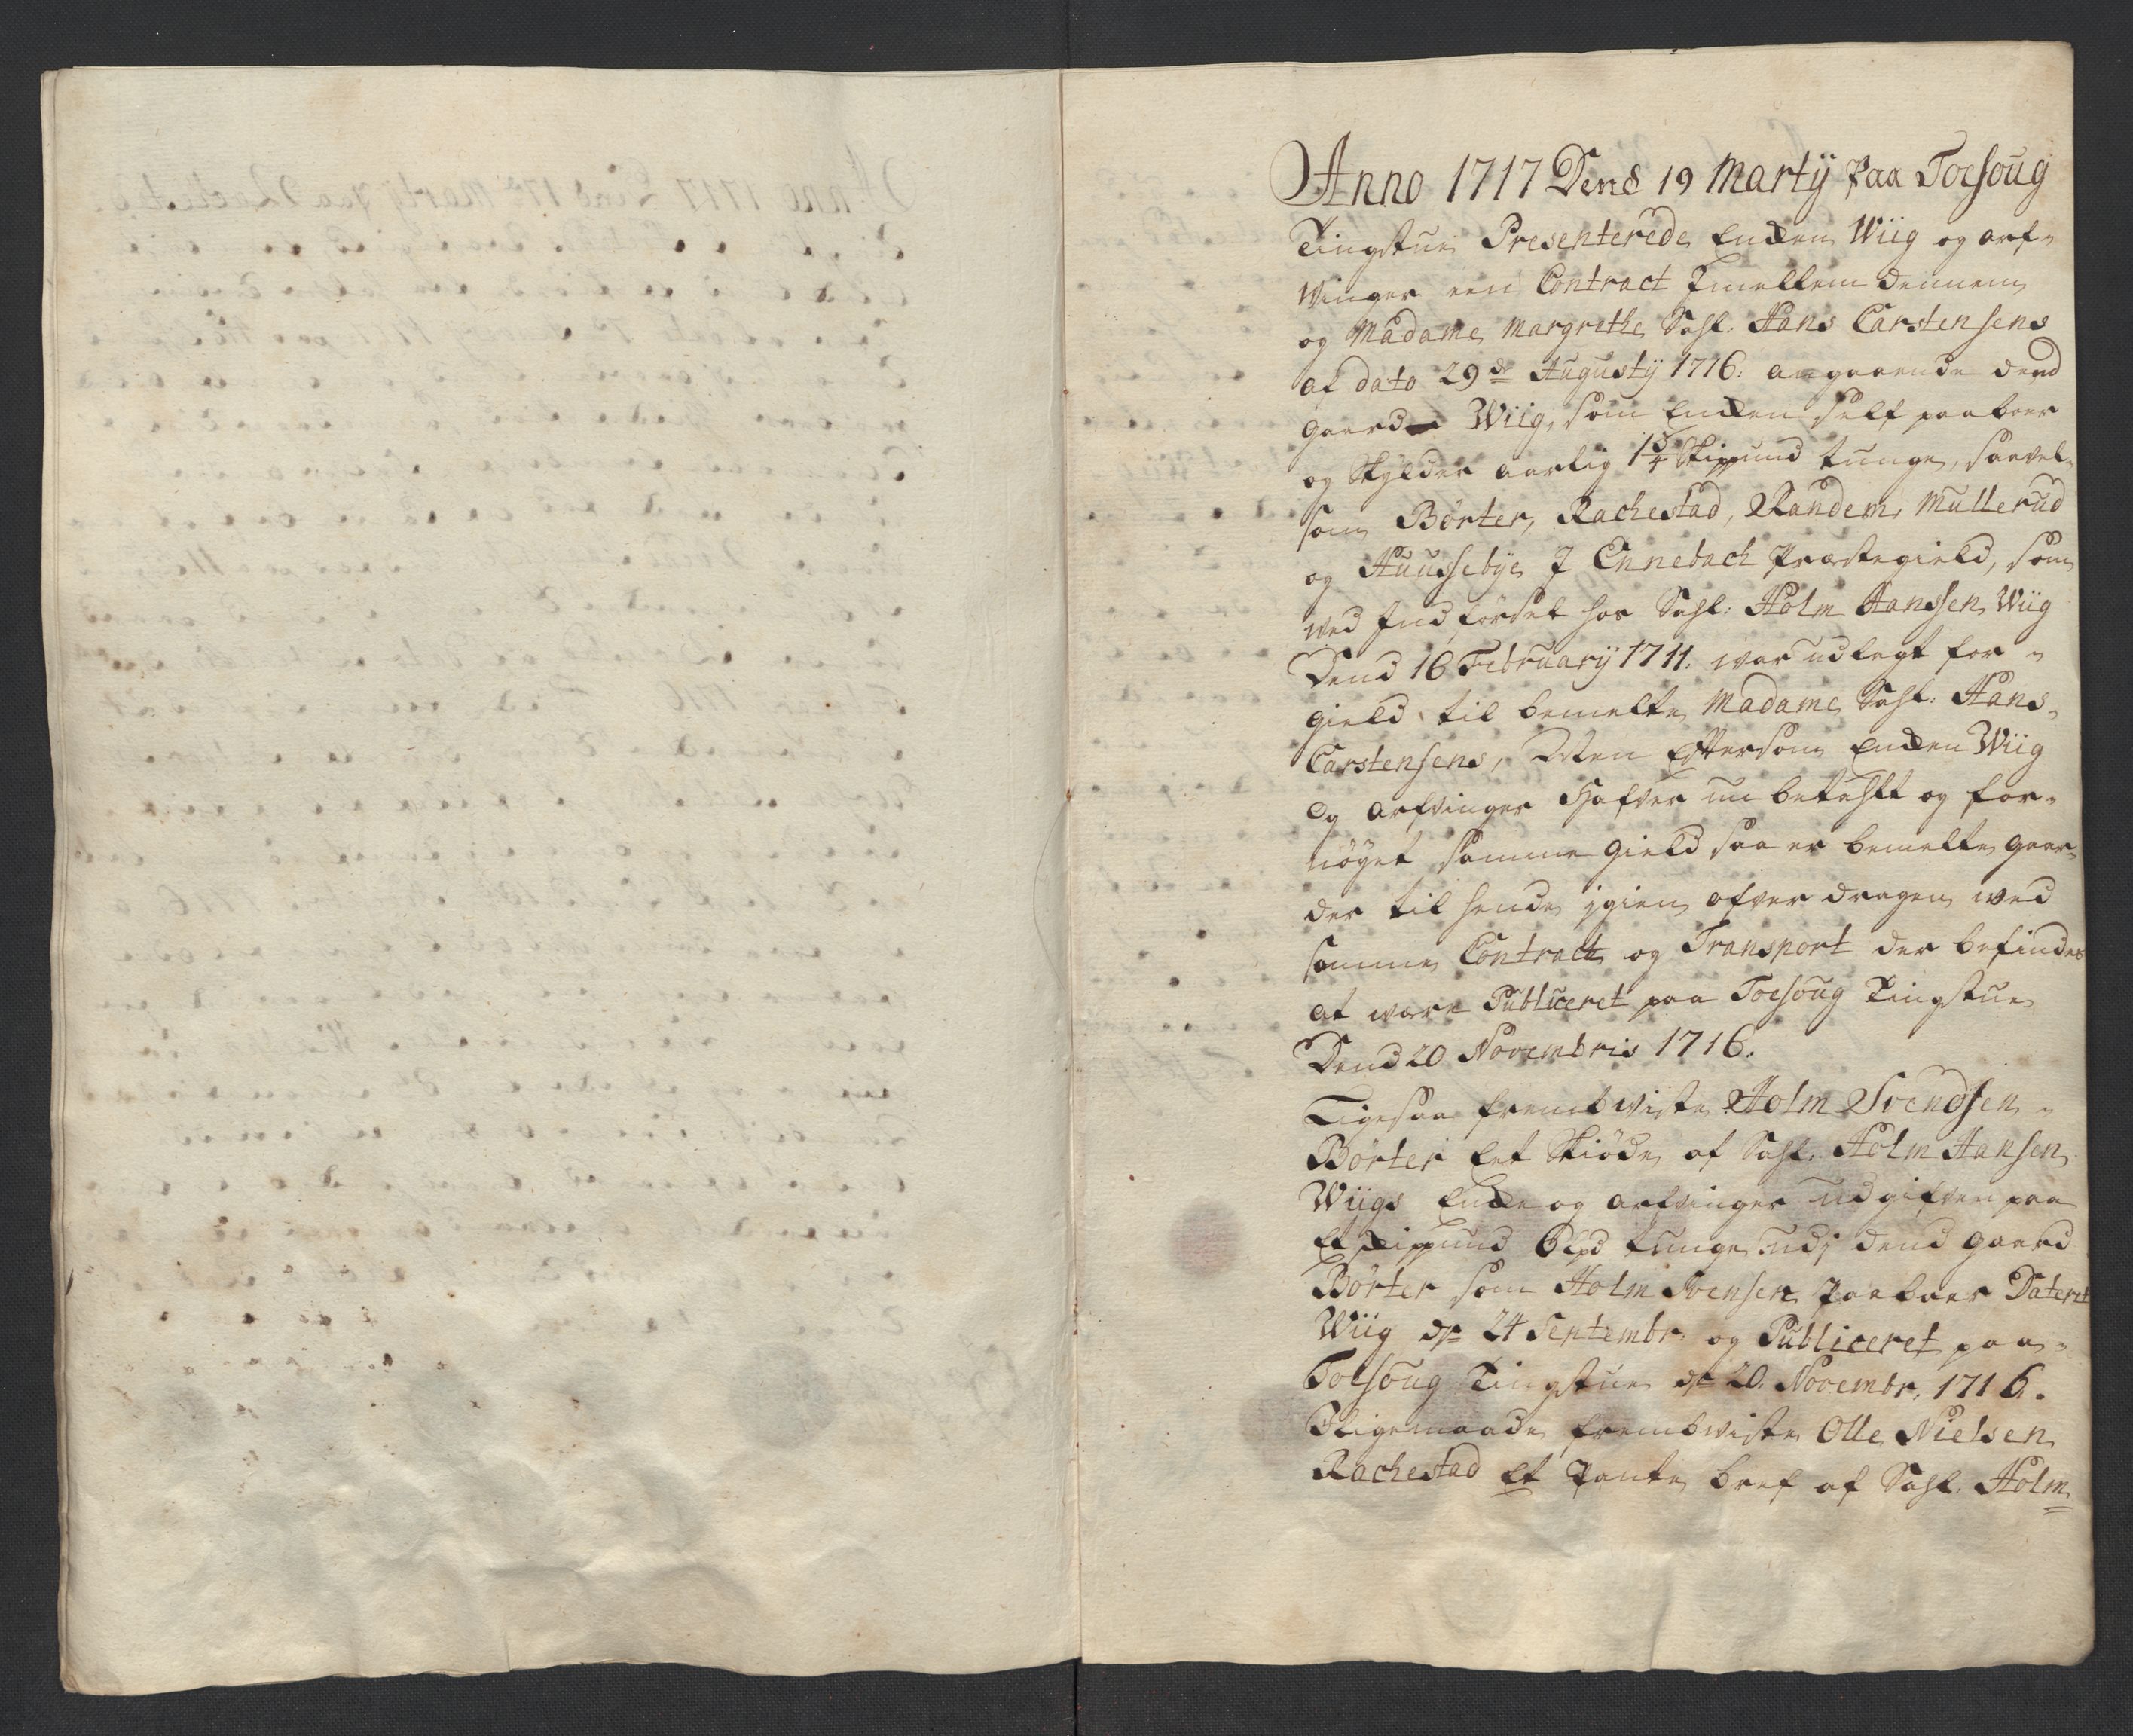 Anno 1717 Dend 19 Martij Paa Toesoug
Tingstue Presenterede Encken Wiig og arf-
winger een Contract Jmellem dennem
og Madame Margrethe Sahl: Hans Carstensens
af dato 29de Augustij 1716: angaaende dend
gaard Wiig, som Encken self paaboer
og Skylder aarlig 1 3/4 Skippund tunge, saavel-
som Börter, Rachestad, Randem, Mullerud
og Huussebye J Ennebach Præstegield, som
wed Jndförsel hos Sahl: Holm Hanssen Wiig
Dend 16 Februarij 1711. war udlagt for
gield til bemelte Madame Sahl: Hans
Carstensens, Men Eftersom Encken Wiig
og arfvinger Hafver nu betahlt og for-
nöyet samme gield saa er bemelte gaar-
der til hende jgien ofver dragen wed
samme Contract og Transport der befindes
at wære Publiceret paa Toesoug Tingstue
Dend 20 Novembris 1716.
Ligesaa frembwiste Holm Svendsen
Börter Eet Skiöde af Sahl. Holm Hansen
Wiigs Encke og arfvinger udgifven paa
Et Skippund 6 Lpd tunge udj dend gaard
Börter som Holm Svensen Paaboer Dateret
Wiig dn 24 Septembr. og Publiceret paa
Toesoug Tingstue dn 20. Novembr. 1716.
Jligemaade frembwiste Olle Nielsen
Rachestad Et Pante bref af Sahl. Holm